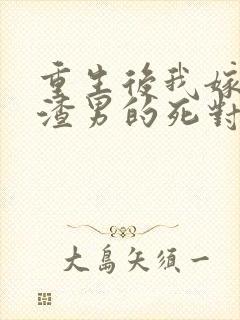 重生後我嫁
渣男的死對
大島矢須一